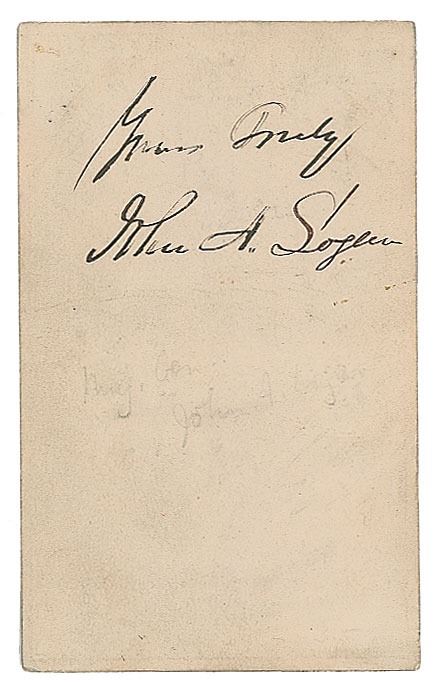 Yours Truly
John A. Logan
Maj. Gen
John A. Logan